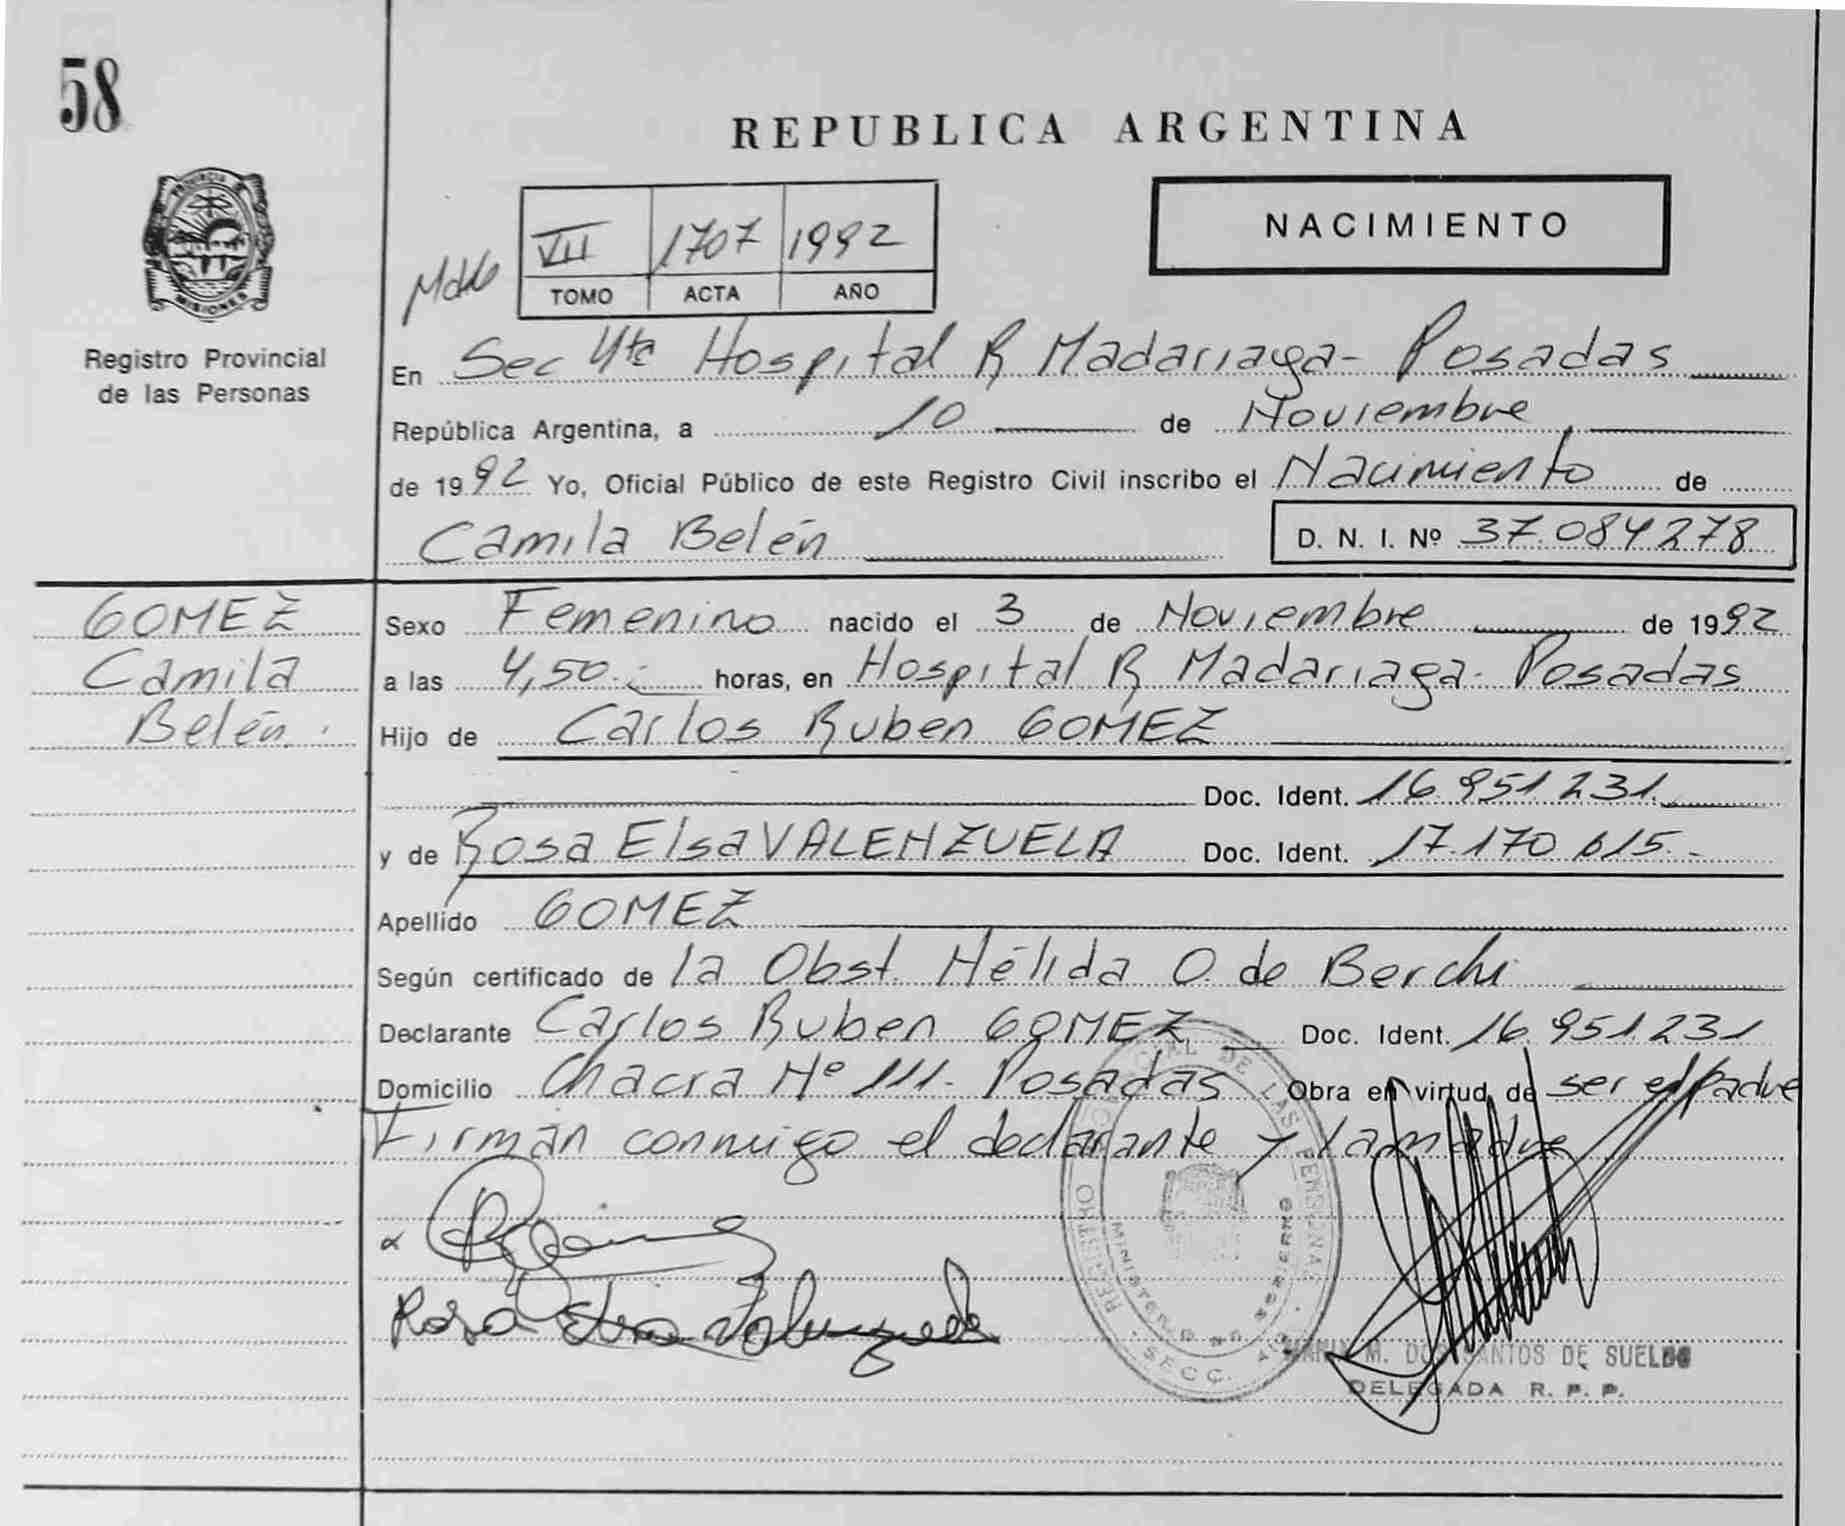 58
REPUBLICA ARGENTINA
PROVINCIA DE
MISIONES
Registro Provincial
de las Personas
VII 1707 1992
TOMO ACTA AÑO
NACIMIENTO
En Sec 4ta Hospital R Madariaga - Posadas
República Argentina, a 10 de Noviembre
de 1992 Yo, Oficial Público de este Registro Civil inscribo el Nacimiento de
Camila Belén D. N. I. Nº 37.084.278
GOMEZ
Camila
Belén.
Sexo Femenino nacido el 3 de Noviembre de 1992
a las 4,50.- horas, en Hospital R Madariaga - Posadas
Hijo de Carlos Ruben GOMEZ
Doc. Ident. 16.951.231
y de Rosa Elsa VALENZUELA Doc. Ident. 17.170.615.-
Apellido GOMEZ
Según certificado de la Obst. Nélida O. de Berchi
Declarante Carlos Ruben GOMEZ Doc. Ident. 16.951.231
Domicilio Chacra Nº 111. Posadas Obra en virtud de ser el padre
Firman conmigo el declarante y la madre
Rosa Elsa Valenzuela
REGISTRO PROVINCIAL DE LAS PERSONAS
MINISTERIO DE GOBIERNO
SECC. 4ta
MARIA M. DOS SANTOS DE SUELDO
DELEGADA R. P. P.